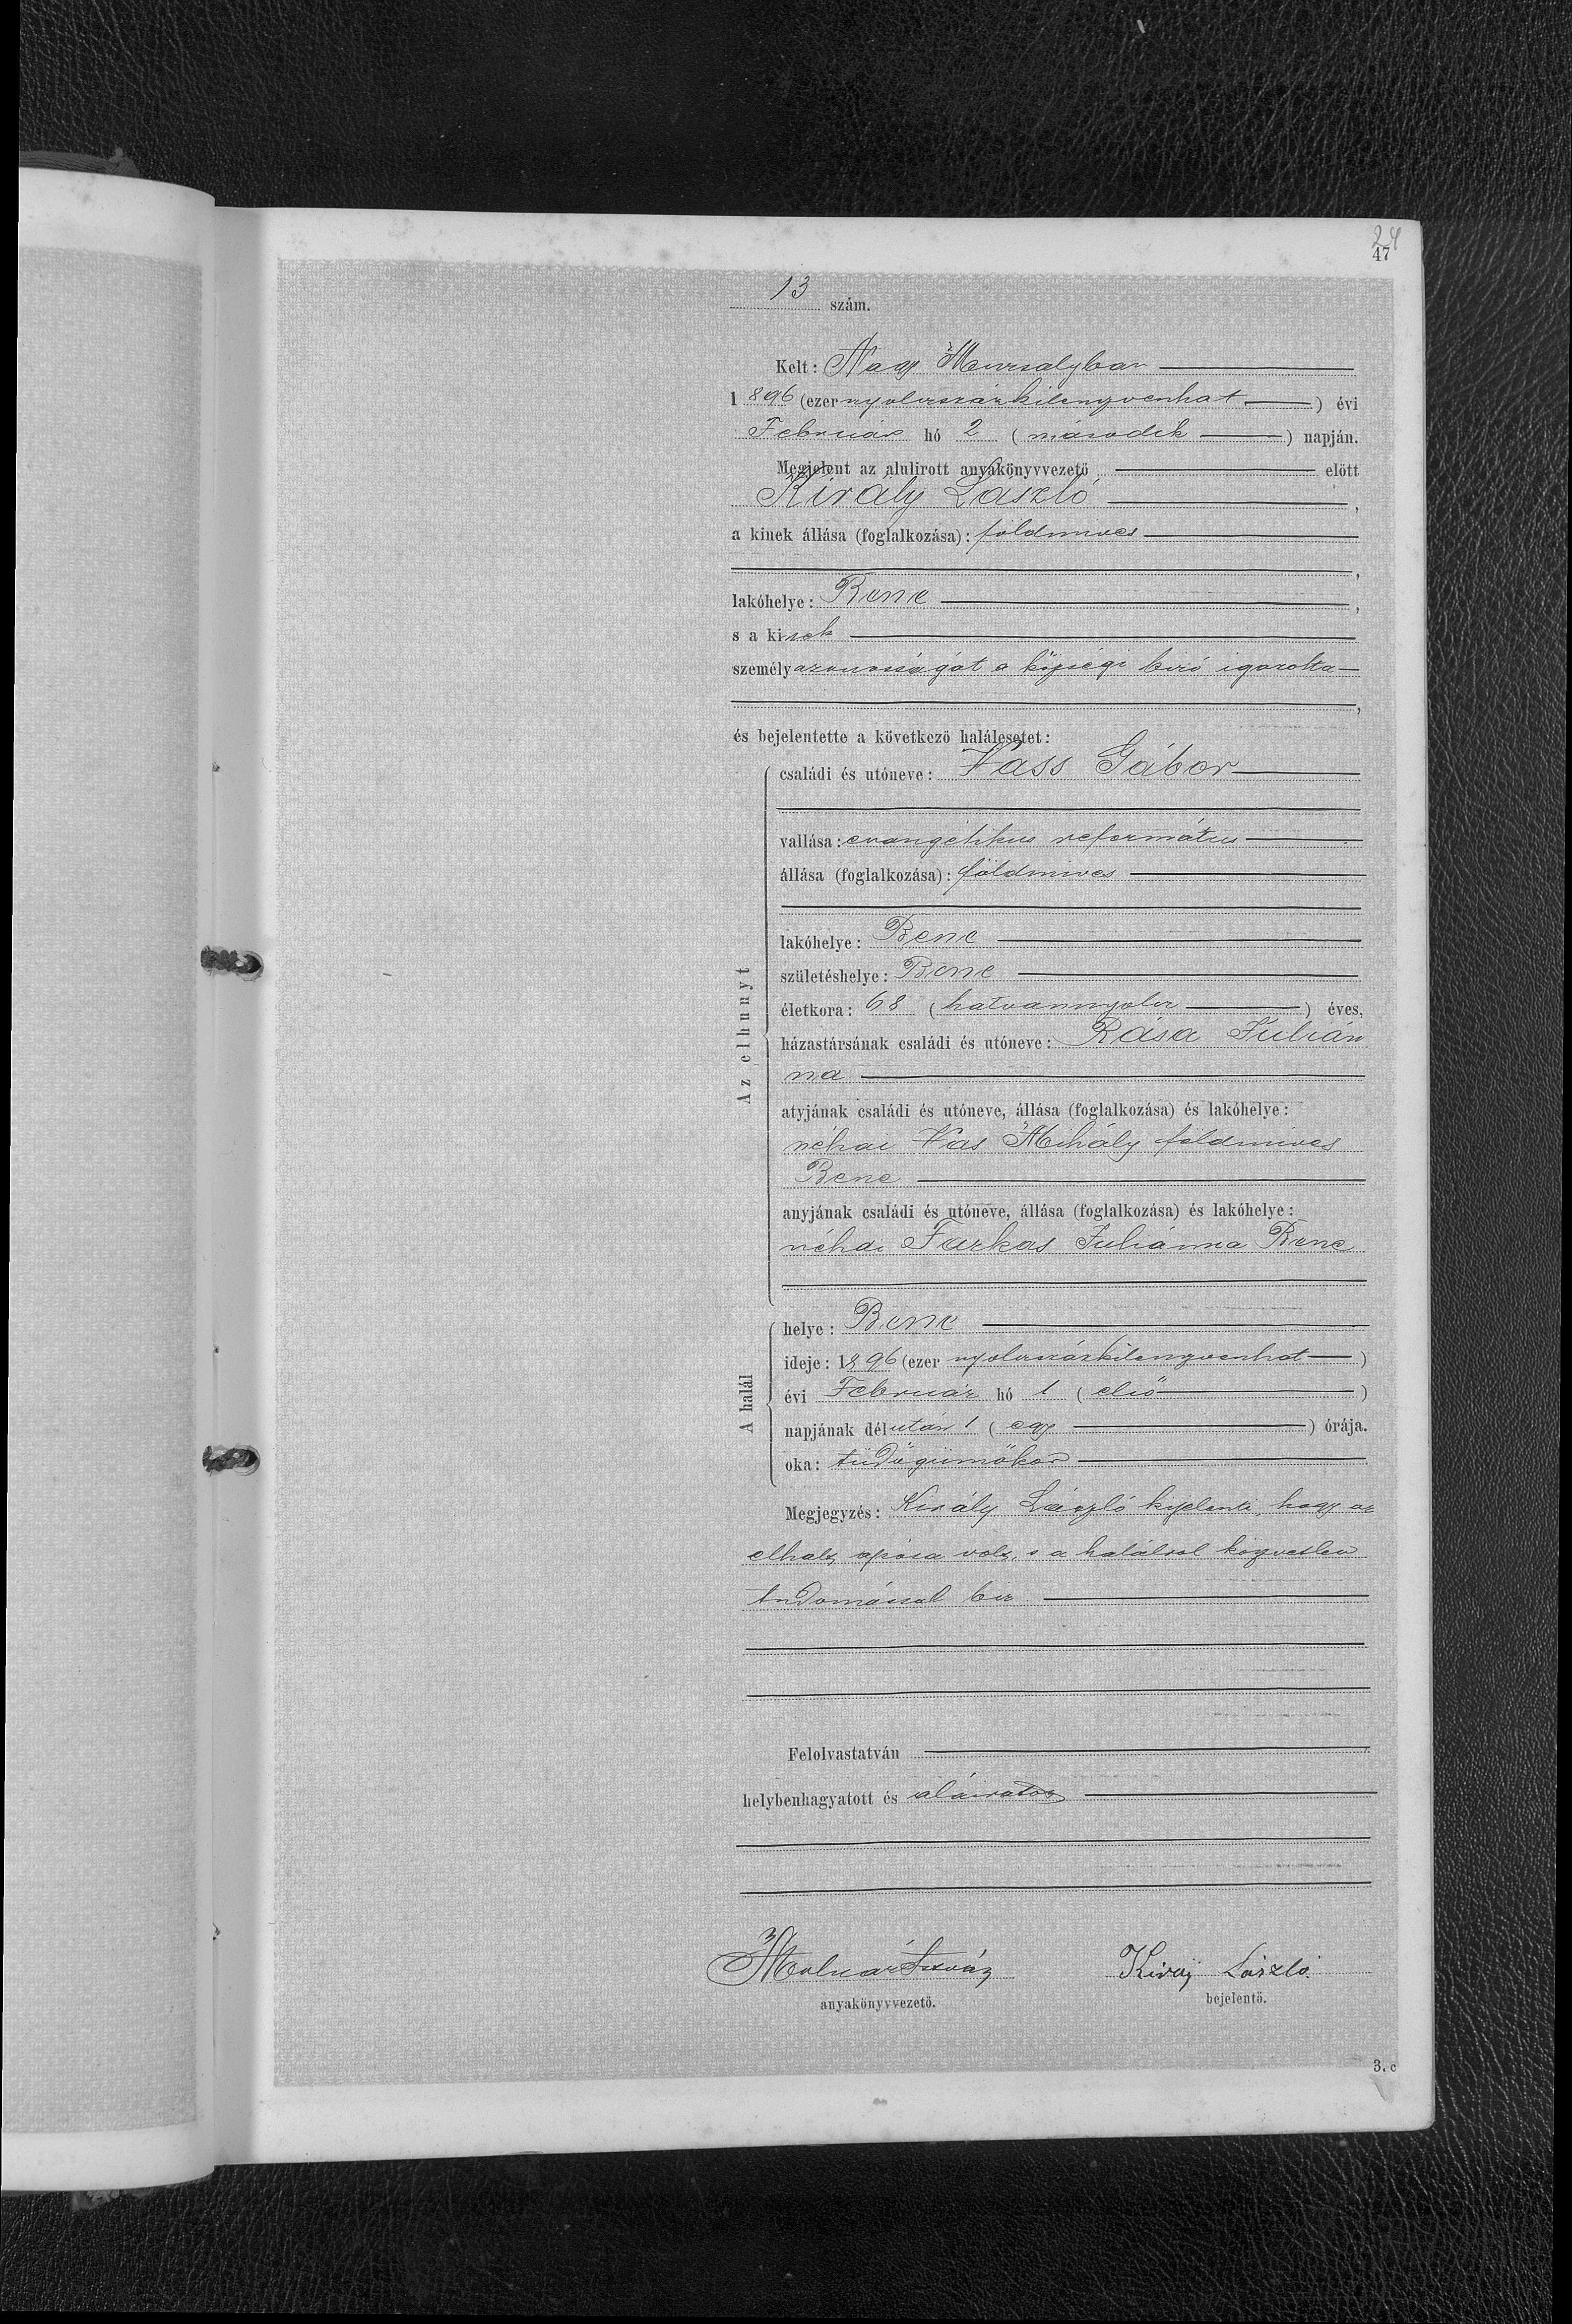 24
47
13 szám.
Kelt: Nagy Muzsalyban
1896 (ezer nyolczszázkilenczvenhat) évi
Február hó 2 (második) napján.
Megjelent az alulirott anyakönyvvezető előtt
Király László,
a kinek állása (foglalkozása): földmives
,
lakóhelye: Bene,
s a kinek
személyazonosságát a községi biró igazolta
,
és bejelentette a következő halálesetet:
családi és utóneve: Vass Gábor
vallása: evangélikus református
állása (foglalkozása): földmives
lakóhelye: Bene
születéshelye: Bene
Az elhunnyt
életkora: 68 (hatvannyolcz) éves,
házastársának családi és utóneve: Rása Julián
na
atyjának családi és utóneve, állása (foglalkozása) és lakóhelye:
néhai Vas Mihály földmives
Bene
anyjának családi és utóneve, állása (foglalkozása) és lakóhelye:
néhai Farkas Juliánna Bene
helye: Bene
ideje: 1896 (ezer nyolczszázkilenczvenhat)
A halál
évi Február hó 1 (első)
napjának délután 1 (egy) órája.
oka: tüdőgümőkor
Megjegyzés: Király László kijelenti, hogy az
elhalt apósa volt, s a halálról közvetlen
tudomással bir
Felolvastatván
helybenhagyatott és aláiratott
Molnár István Kiraj László
anyakönyvvezető. bejelentő.
3. c